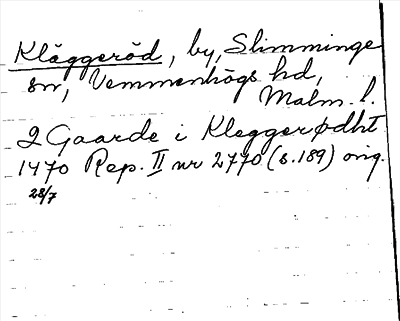 Kläggeröd, by, Slimminge
sn, Vemmenhögs hd,
Malm. l.
2 Gaarde i Kleggerødht
1470 Rep. II nr 2770 (s.189) orig.
28/7